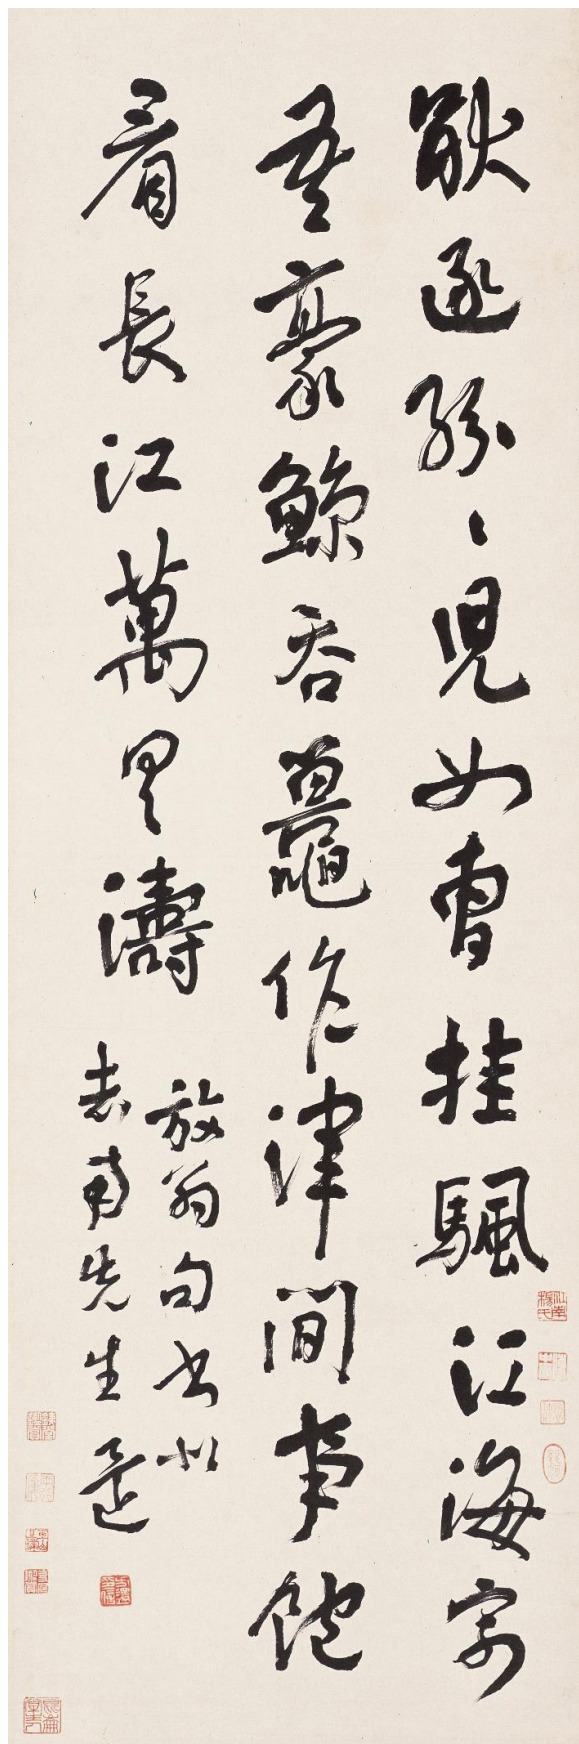 猒逐紛〻兒女曹挂颿江海寄
吾豪鯨吞鼉作渾間事飽
看長江萬里濤
放翁句書似
志甫先生